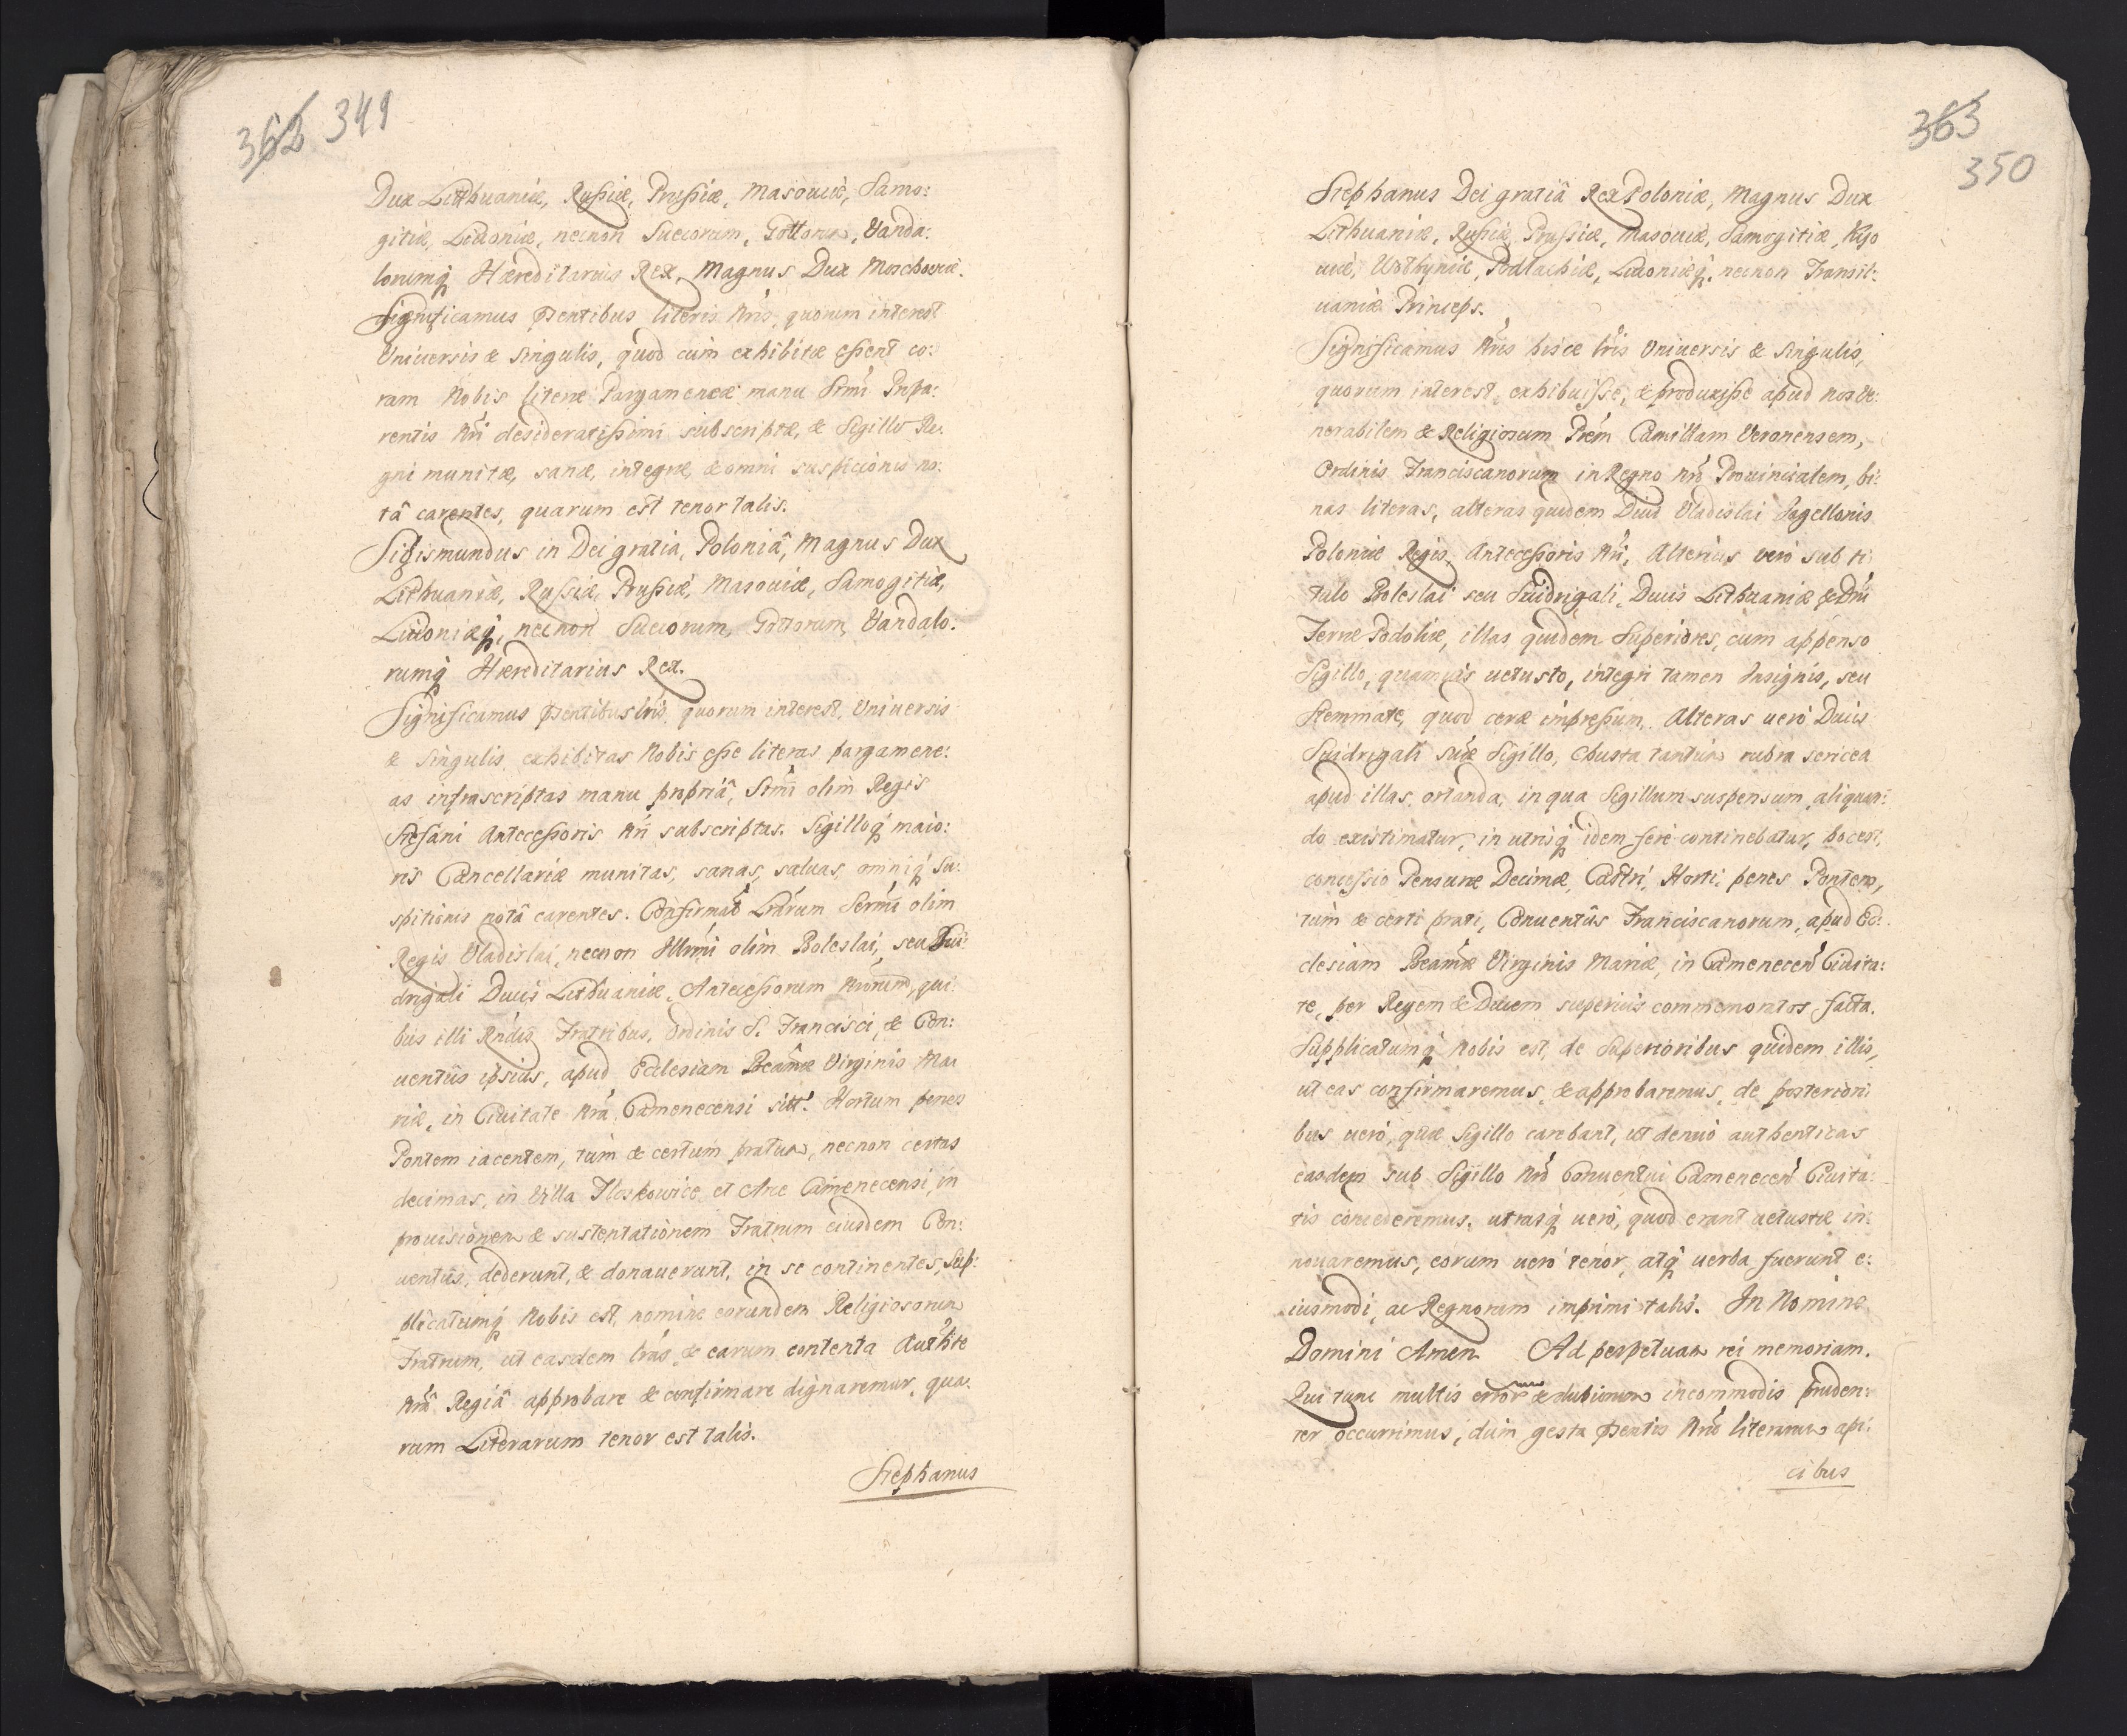 362 349
Dux Litthuaniæ, Russiæ, Prussiæ, Masouiæ, Samo:
gitiæ, Liuoniæ, necnon Suecorum, Gottorum, Vanda:
lorumq́ Hæreditarius Rex, Magnus Dux Moschoviæ.
Significamus pntibus literis nris, quorum interest
Vniuersis & singulis, quod cum exhibitæ essent co:
ram Nobis literæ Pargameneæ manu Srmi Dnpa:
rentis nri desideratissimi subscriptæ, & Sigillo Re:
gni munitæ, sanæ, integræ, & omni suspicionis no:
tâ carentes, quarum est tenor talis.
Sigismundus in Dei gratia, Poloniâ, Magnus Dux
Lithuaniæ, Russiæ, Prussiæ, Masouiæ, Samogitiæ,
Liuoniæq́, necnon Suecorum, Gottorum, Vandalo:
rumq́ Hæreditarius Rex.
Significamus pntibus lris, quorum interest, Vniuersis
& singulis exhibitas Nobis esse literas pargamene:
as infrascriptas manu propriâ, Srmi olim Regis
Stefani Antecessoris nri subscriptas. Sigilloq́ maio:
ris Cancellariæ munitas, sanas, saluas, omniq́ su:
spitionis notâ carentes. Confirmat Lrarum Sermi olim
Regis Vladislai, necnon Illrmi olim Boleslai, seu Sui:
drigali Ducis Lithuaniæ, Antecessorum nrorum, qui:
bus illi Rndis Fratribus, Ordinis S. Francisci, & Con:
uentûs ipsius, apud Ecclesiam Beatæ Virginis Ma:
riæ, in Ciuitate nra Camenecensi sitt. Hortum penes
Pontem iacentem, tùm & certum pratum, necnon certas
decimas, in Villa Hoskowice et Arce Camenecensi, in
prouisionem & sustentationem Fratrum eiusdem Con:
uentûs, dederunt, & donauerunt, in se continentes, Sup:
plicatumq́ Nobis est, nomine eorundem Religiosorum
Fratrum, ut easdem lras, & earum contenta Authte
nrâ Regiâ approbare & confirmare dignaremur, qua:
rum Literarum tenor est talis.
Stephanus
363
350
Stephanus Dei gratiâ Rex Poloniæ, Magnus Dux
Lithuaniæ, Russiæ, Prussiæ, Masouiæ, Samogitiæ, Kijo
uiæ, Wolhyniæ, Podlachiæ, Liuoniæq́, necnon Transil:
uaniæ Princeps.
Significamus nris hisce lris Vniuersis & singulis,
quorum interest, exhibuisse, & produxisse apud nos Ve:
nerabilem & Religiosum Prem Camillam Veronensem,
Ordinis Franciscanorum in Regno nro Prouincialem, bi:
nas literas, alteras quidem Diui Vladislai Jagellonis
Poloniæ Regis, Antecessoris nri, Alterius verò sub ti
tulo Boleslai seu Suidrigali, Ducis Lithuaniæ & Dni
Terræ Podoliæ, illas quidem superiores, cum appenso
Sigillo, quamuis uetusto, integri tamen Insignis, seu
Stemmate, quod ceræ impressum. Alteras uerò Ducis
Suidrigali sinè Sigillo, Chusta tantùm rubra sericea
apud illas, ortanda, in qua Sigillum suspensum aliquan:
do existimatur, in utrisq́ idem ferè continebatur, hoc est,
concessio Pensunæ Decimæ, Castri, Horti, penes Pontem,
tùm & certi prati, Conuentûs Franciscanorum, apud Ec:
clesiam Beatæ Virginis Mariæ, in Camenecen Ciuita:
te, per Regem & Ducem superius commemoratos facta.
Supplicatumq́ Nobis est, de superioribus quidem illis,
ut eas confirmaremus, & approbaremus, de posteriori
bus uerò, quæ Sigillo carebant, ut denuò authenticas
easdem sub Sigillo nro Conuentui Camenecen Ciuita:
tis concederemus. utrasq́ uerò, quod erant uetustæ in:
nouaremus, eorum uerò tenor, atq́ uerba fuerunt e:
iusmodi, ac Regnorum imprimi talis. In Nomine
Domini Amen Ad perpetuam rei memoriam.
Qui tunc multis error & dubiorum incommodis pruden:
ter occurrimus, dum gesta pntis nro literarum api:
cibus